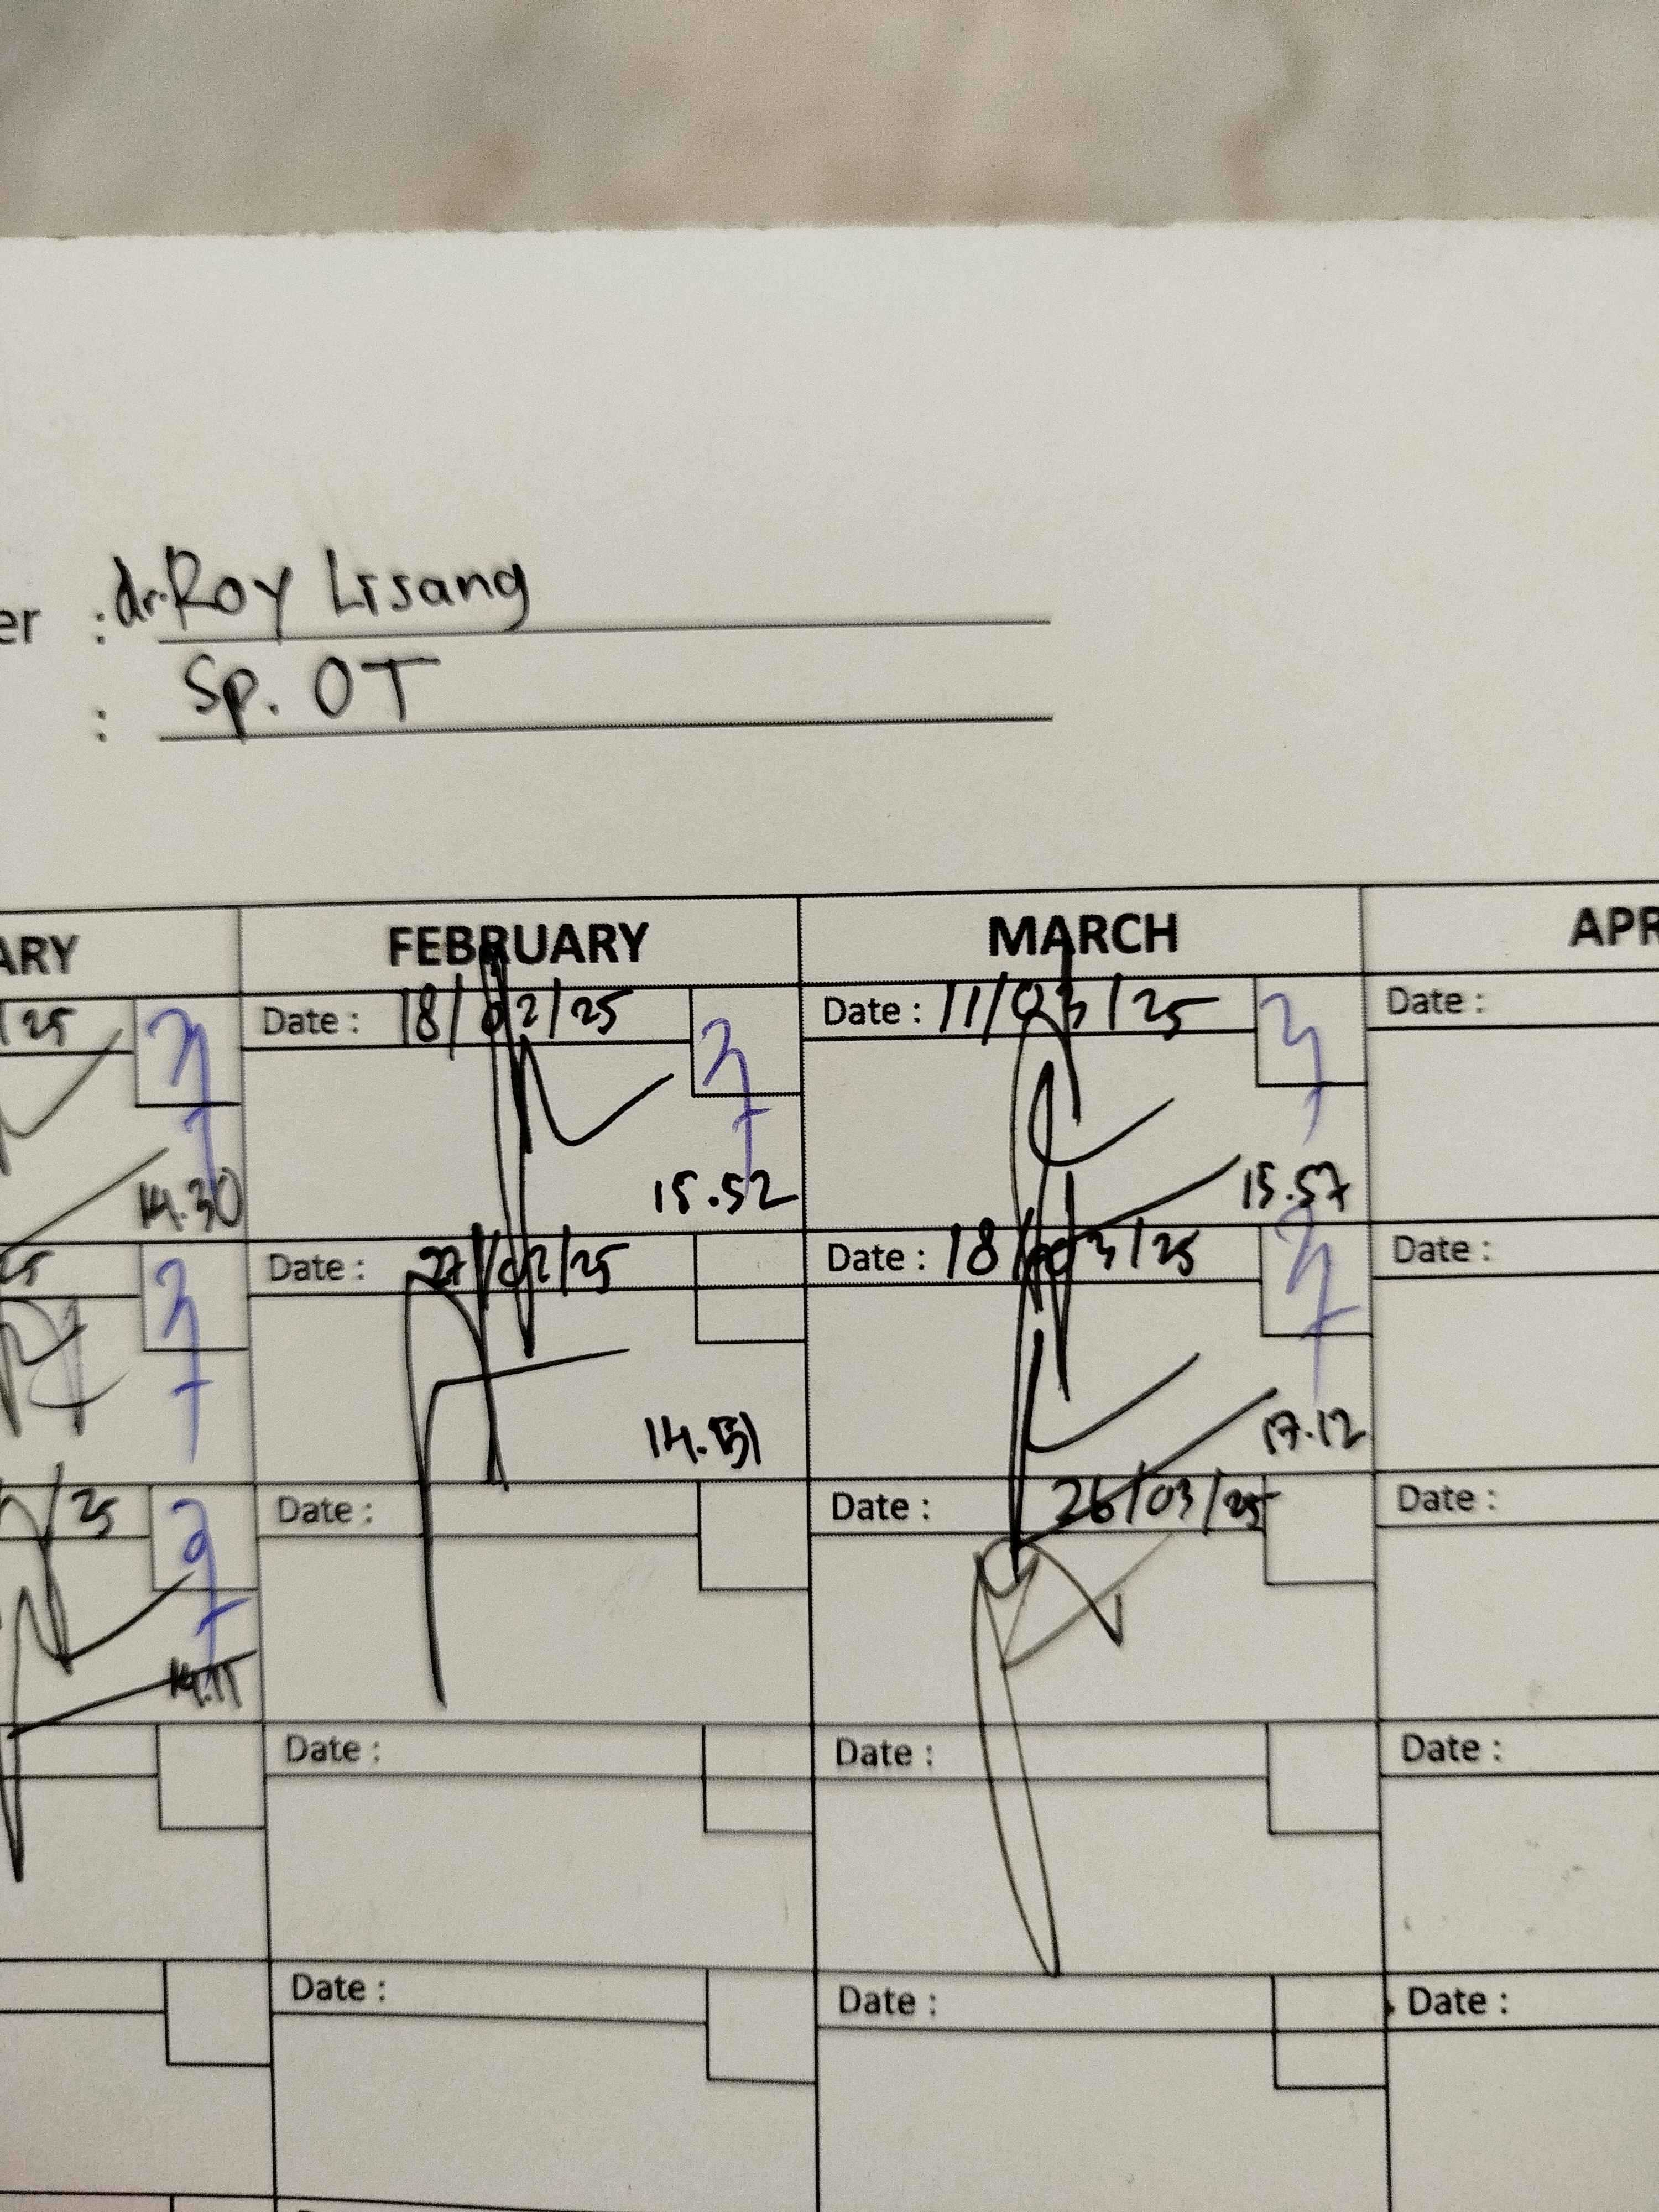 er : dr. Roy Lisang
: Sp. OT
ARY FEBRUARY MARCH APR
25 Date : 18/02/25 Date : 11/03/25 Date :
14.30 15.52 15.57
25 Date : 27/02/25 Date : 18/03/25 Date :
14.51 17.12
25 Date : Date : 26/03/25 Date :
14.11
Date : Date : Date :
Date : Date : Date :